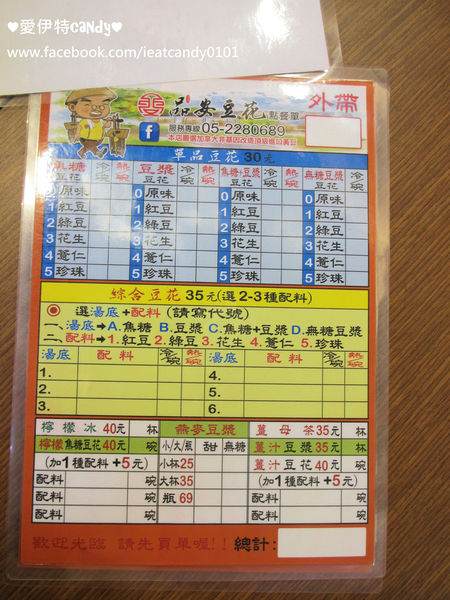 ♥愛伊特Candy♥
www.facebook.com/ieatcandy0101
品安豆花 點餐單 外帶
服務專線 05-2280689
本店嚴選加拿大非基因改造頂級進口黃豆
單品豆花 30元
焦糖豆花 冷碗 熱碗 豆漿豆花 冷碗 熱碗 焦糖+豆漿豆花 冷碗 熱碗 無糖豆漿豆花 冷碗 熱碗
0 原味 0 原味 0 原味 0 原味
1 紅豆 1 紅豆 1 紅豆 1 紅豆
2 綠豆 2 綠豆 2 綠豆 2 綠豆
3 花生 3 花生 3 花生 3 花生
4 薏仁 4 薏仁 4 薏仁 4 薏仁
5 珍珠 5 珍珠 5 珍珠 5 珍珠
綜合豆花 35元(選2-3種配料)
選湯底+配料 (請寫代號)
一、湯底➔A.焦糖 B.豆漿 C.焦糖+豆漿 D.無糖豆漿
二、配料➔1.紅豆 2.綠豆 3.花生 4.薏仁 5.珍珠
湯底 配料 冷碗 熱碗 湯底 配料 冷碗 熱碗
1. 4.
2. 5.
3. 6.
檸檬冰40元 杯 燕麥豆漿 薑母茶35元 杯
檸檬焦糖豆花40元 碗 小/大/瓶 甜 無糖 薑汁豆漿35元 杯
(加1種配料+5元) 小杯25 薑汁豆花40元 碗
配料 碗 大杯35 (加1種配料+5元)
配料 碗 瓶 69 配料 碗
配料 碗 配料 碗
歡迎光臨 請先買單喔!! 總計: